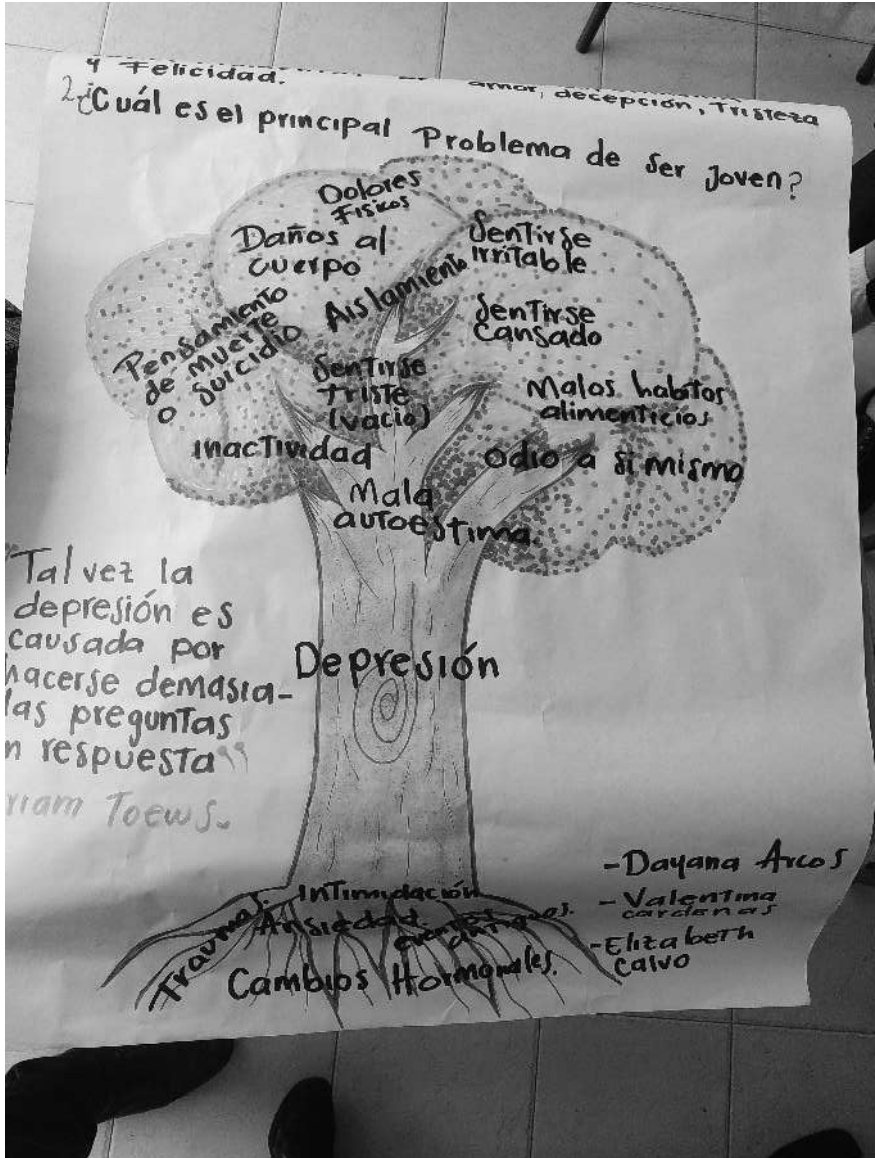 y Felicidad.
amor, decepción, Tristeza
2. ¿Cuál es el principal Problema de ser Joven?
Dolores
Físicos
Daños al
cuerpo
Sentirse
Irritable
Aislamiento
Pensamiento
de muerte
o suicidio
Sentirse
Cansado
Sentirse
Triste
(vacio)
Malos habitos
alimenticios
inactividad
odio a si mismo
Mala
autoestima.
"Tal vez la
depresión es
causada por
hacerse demasia-
das preguntas
respuesta"
Toews.
Depresión
Traumas.
Intimidación
Ansiedad.
eventos
antiguos.
Cambios Hormonales.
-Dayana Arcos
-Valentina
cardenas
-Elizabeth
Calvo